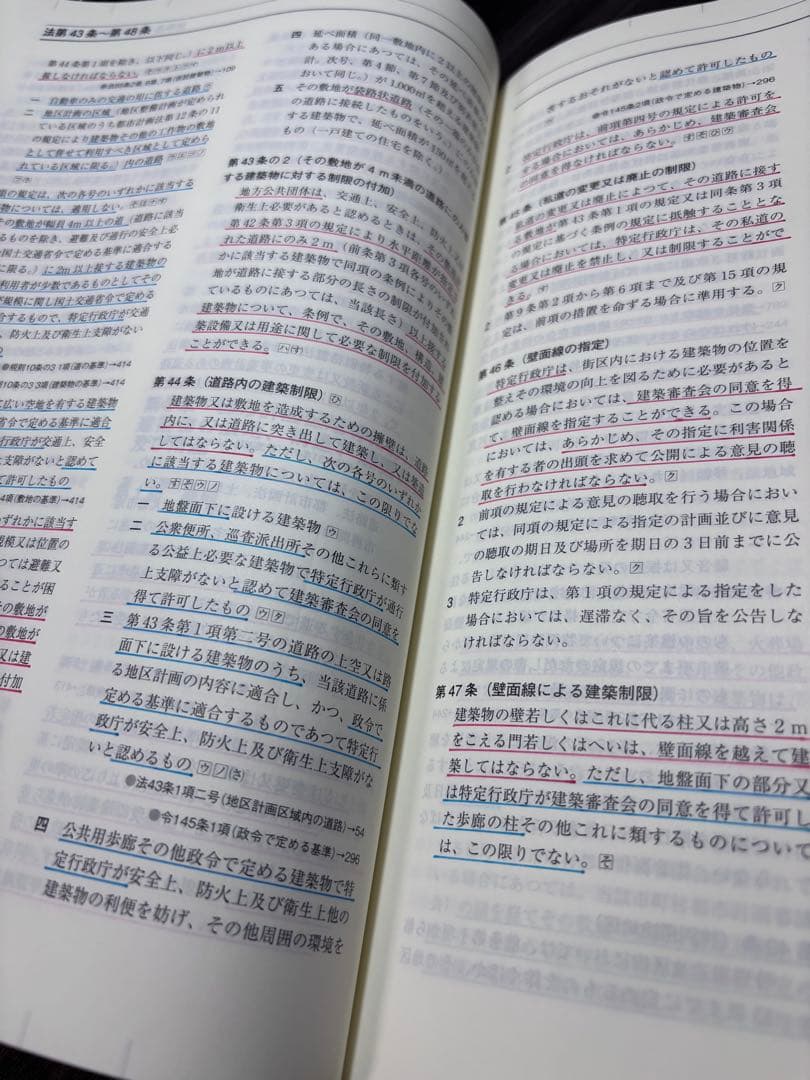 法第43条〜第48条
第44条第1項を除き、以下同じ。)に2m以上
接しなければならない。
一 自動車のみの交通の用に供する道路
二 地区計画の区域(地区整備計画が定められ
ている区域のうち都市計画法第12条の11
の規定により建築物その他の工作物の敷地
として併せて利用すべき区域として定めら
れている区域に限る。)内の道路
の規定は、次の各号のいずれかに該当する
物については、適用しない。
の敷地が幅員4m以上の道(道路に該当
るものを除き、避難及び通行の安全上必
る国土交通省令で定める基準に適合する
に限る。)に2m以上接する建築物の
利用者が少数であるものとしてその
規模に関し国土交通省令で定める
合するもので、特定行政庁が交通
、防火上及び衛生上支障がない
規則10条の3 1項(道の基準)→414
10条の3 3項(建築物の基準)→414
広い空地を有する建築物
省令で定める基準に適合
行政庁が交通上、安全
上支障がないと認めて
て許可したもの
4項(敷地の基準)→414
ずれかに該当す
規模又は位置の
つては避難又
ることが困
その敷地が
の敷地が
又は建
付加
四 延べ面積(同一敷地内に2以上の
ある場合にあつては、その延べ
計。次号、第4節、第7節及び
おいて同じ。)が1,000㎡を超える
五 その敷地が袋路状道路(その
の道路に接続したものをいう。
する建築物で、延べ面積が150㎡を
もの(一戸建ての住宅を除く。)
第43条の2(その敷地が4m未満の道路に
する建築物に対する制限の付加)
地方公共団体は、交通上、安全上、防火上
衛生上必要があると認めるときは、その敷地が
第42条第3項の規定により水平距離が指定
れた道路にのみ2m(前条第3項各号のいずれ
かに該当する建築物で同項の条例によりその敷
地が道路に接する部分の長さの制限が付加され
ているものにあつては、当該長さ)以上接する
建築物について、条例で、その敷地、構造、建
築設備又は用途に関して必要な制限を付加する
ことができる。
第44条(道路内の建築制限)
建築物又は敷地を造成するための擁壁は、道路
内に、又は道路に突き出して建築し、又は築造
してはならない。ただし、次の各号のいずれか
に該当する建築物については、この限りでな
い。
一 地盤面下に設ける建築物 ウ
二 公衆便所、巡査派出所その他これらに類す
る公益上必要な建築物で特定行政庁が通行
上支障がないと認めて建築審査会の同意を
得て許可したもの ウタ
三 第43条第1項第二号の道路の上空又は路
面下に設ける建築物のうち、当該道路に係
る地区計画の内容に適合し、かつ、政令で
定める基準に適合するものであつて特定行
政庁が安全上、防火上及び衛生上支障がな
いと認めるもの ウノ(さ)
●法43条1項二号(地区計画区域内の道路)→54
●令145条1項(政令で定める基準)→296
四 公共用歩廊その他政令で定める建築物で特
定行政庁が安全上、防火上及び衛生上他の
建築物の利便を妨げ、その他周囲の環境を
害するおそれがないと認めて許可したもの
●令145条2項(政令で定める建築物)→296
2 特定行政庁は、前項第四号の規定による許可を
する場合においては、あらかじめ、建築審査会
の同意を得なければならない。
第45条(私道の変更又は廃止の制限)
私道の変更又は廃止によつて、その道路に接す
る敷地が第43条第1項の規定又は同条第3項
の規定に基づく条例の規定に抵触することとな
る場合においては、特定行政庁は、その私道の
変更又は廃止を禁止し、又は制限することがで
きる。
2 第9条第2項から第6項まで及び第15項の規
定は、前項の措置を命ずる場合に準用する。 ク
第46条(壁面線の指定)
特定行政庁は、街区内における建築物の位置を
整えその環境の向上を図るために必要があると
認める場合においては、建築審査会の同意を得
て、壁面線を指定することができる。この場合
においては、あらかじめ、その指定に利害関係
を有する者の出頭を求めて公開による意見の聴
取を行わなければならない。 ク
2 前項の規定による意見の聴取を行う場合におい
ては、同項の規定による指定の計画並びに意見
の聴取の期日及び場所を期日の3日前までに公
告しなければならない。 ク
3 特定行政庁は、第1項の規定による指定をした
場合においては、遅滞なく、その旨を公告しな
ければならない。
第47条(壁面線による建築制限)
建築物の壁若しくはこれに代る柱又は高さ2m
をこえる門若しくはへいは、壁面線を越えて建
築してはならない。ただし、地盤面下の部分又
は特定行政庁が建築審査会の同意を得て許可し
た歩廊の柱その他これに類するものについて
は、この限りでない。 そ